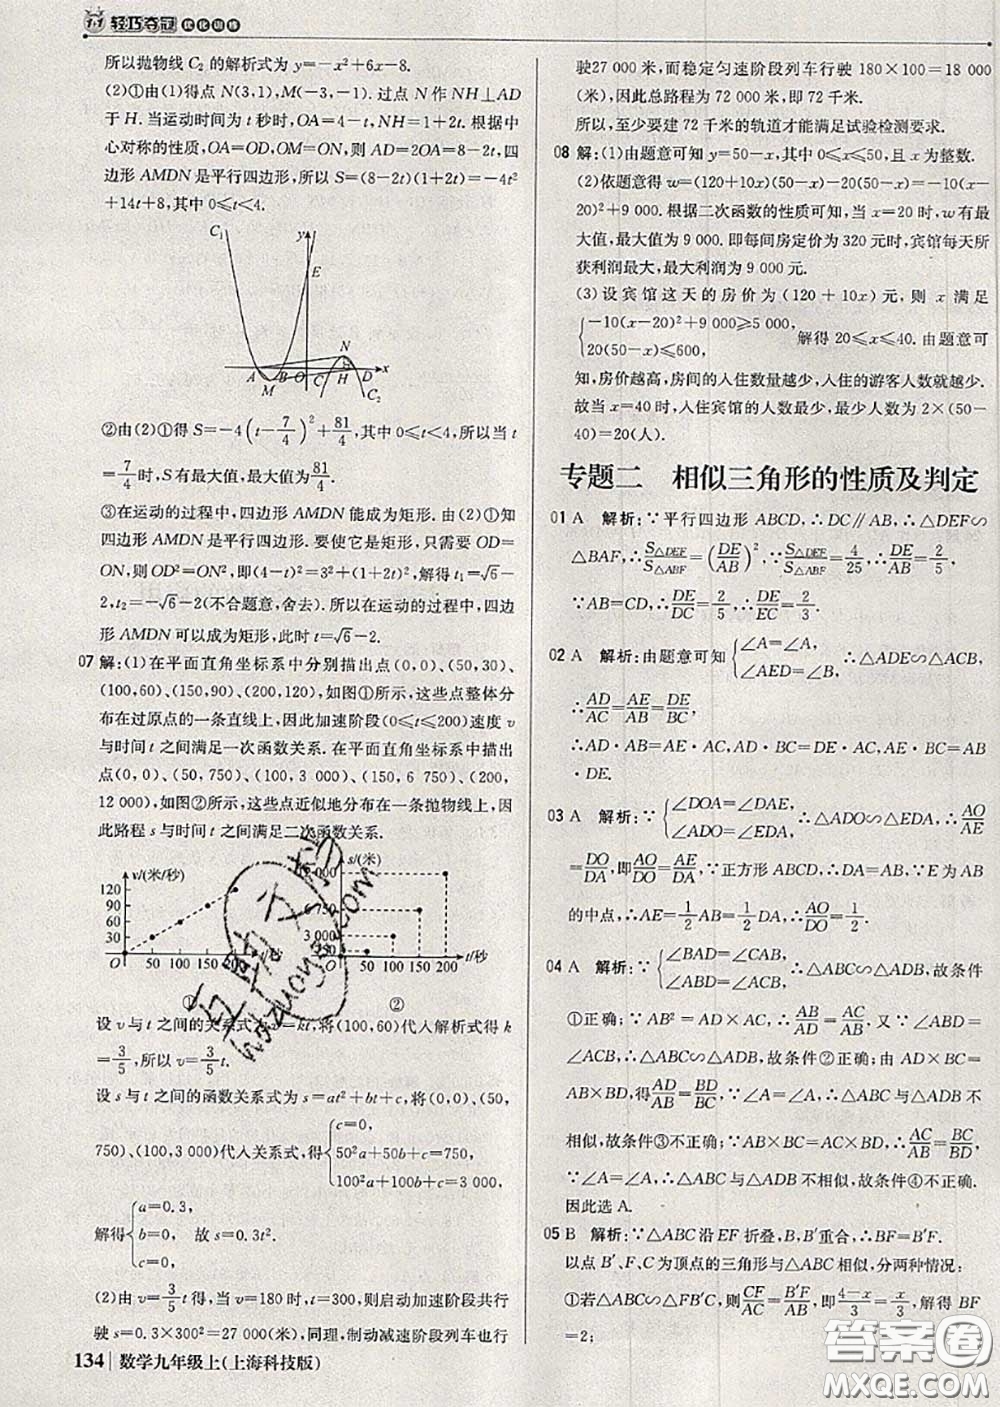 1+1 轻巧夺冠 优化训练
所以抛物线 C₂ 的解析式为 y=-x²+6x-8.
(2)①由(1)得点 N(3,1),M(-3,-1). 过点 N 作 NH⊥AD
于 H. 当运动时间为 t 秒时,OA=4-t,NH=1+2t. 根据中
心对称的性质,OA=OD,OM=ON,则 AD=2OA=8-2t,四
边形 AMDN 是平行四边形,所以 S=(8-2t)(1+2t)=-4t²
+14t+8,其中 0≤t<4.
C₁ y E N A M B O C H D x C₂
②由(2)①得 S=-4(t-7/4)²+81/4,其中 0≤t<4,所以当 t
=7/4时,S 有最大值,最大值为81/4.
③在运动的过程中,四边形 AMDN 能成为矩形. 由(2)①知
四边形 AMDN 是平行四边形. 要使它是矩形,只需要 OD=
ON,则 OD²=ON²,即(4-t)²=3²+(1+2t)²,解得 t₁=√6-
2,t₂=-√6-2(不合题意,舍去). 所以在运动的过程中,四边
形 AMDN 可以成为矩形,此时 t=√6-2.
07 解:(1)在平面直角坐标系中分别描出点(0,0)、(50,30)、
(100,60)、(150,90)、(200,120),如图①所示,这些点整体分
布在过原点的一条直线上,因此加速阶段(0≤t≤200)速度 v
与时间 t 之间满足一次函数关系. 在平面直角坐标系中描出
点(0,0)、(50,750)、(100,3 000)、(150,6 750)、(200,
12 000),如图②所示,这些点近似地分布在一条抛物线上,因
此路程 s 与时间 t 之间满足二次函数关系.
v/(米/秒) 120 90 60 30 O 50 100 150 200
①
s/(米) 3 000 O 50 100 150 200 t/秒
②
设 v 与 t 之间的关系式为 v=kt,将(100,60)代人解析式得 k
=3/5,所以 v=3/5t.
设 s 与 t 之间的函数关系式为 s=at²+bt+c,将(0,0)、(50,
750)、(100,3 000)代人关系式,得{c=0, 50²a+50b+c=750, 100²a+100b+c=3 000,
解得{a=0.3, b=0, c=0, 故 s=0.3t².
(2)由 v=3/5t 得,当 v=180 时,t=300,则启动加速阶段共行
驶 s=0.3×300²=27 000(米),同理,制动减速阶段列车也行
134 数学九年级上(上海科技版)
驶27 000 米,而稳定匀速阶段列车行驶 180×100=18 000
(米),因此总路程为 72 000 米,即 72 千米.
所以,至少要建 72 千米的轨道才能满足试验检测要求.
08 解:(1)由题意可知 y=50-x,其中 0≤x≤50,且 x 为整数.
(2)依题意得 w=(120+10x)(50-x)-20(50-x)=-10(x-
20)²+9 000. 根据二次函数的性质可知,当 x=20 时,w 有最
大值,最大值为 9 000. 即每间房定价为 320 元时,宾馆每天所
获利润最大,最大利润为 9 000 元.
(3)设宾馆这天的房价为(120+10x)元,则 x 满足
{-10(x-20)²+9 000≥5 000, 20(50-x)≤600, 解得 20≤x≤40. 由题意可
知,房价越高,房间的人住数量越少,人住的游客人数就越少.
故当 x=40 时,人住宾馆的人数最少,最少人数为 2×(50-
40)=20(人).
专题二 相似三角形的性质及判定
01 A 解析:∵平行四边形 ABCD,∴DC∥AB,∴△DEF∽
△BAF,∴S△DEF/S△ABF=(DE/AB)²,∵S△DEF/S△ABF=4/25,∴DE/AB=2/5,
∵AB=CD,∴DE/DC=2/5,∴DE/EC=2/3.
02 A 解析:由题意可知{∠A=∠A, ∠AED=∠B, ∴△ADE∽△ACB,
∴AD/AC=AE/AB=DE/BC,
∴AD·AB=AE·AC,AD·BC=DE·AC,AE·BC=AB
·DE.
03 A 解析:∵{∠DOA=∠DAE, ∠ADO=∠EDA, ∴△ADO∽△EDA,∴AO/AE
=DO/DA,即AO/DO=AE/DA,∵正方形 ABCD,∴AB=DA,∵E 为 AB
的中点,∴AE=1/2AB=1/2DA,∴AO/DO=1/2.
04 A 解析:∵{∠BAD=∠CAB, ∠ABD=∠C, ∴△ABC∽△ADB,故条件
①正确;∵AB²=AD×AC,∴AB/AD=AC/AB,又∵∠BAD=
∠CAB,∴△ABC∽△ADB,故条件②正确;由 AD×BC=
AB×BD,得AD/AB=BD/BC,∵∠A=∠A,∴△ABC 与△ADB 不
相似,故条件③不正确;∵AB×BC=AC×BD,∴AC/AB=BC/BD,
∵∠A=∠A,∴△ABC 与△ADB 不相似,故条件④不正确.
因此选 A.
05 B 解析:∵△ABC 沿 EF 折叠,B、B′重合,∴BF=B′F.
以点 B′、F、C 为顶点的三角形与△ABC 相似,分两种情况:
①若△ABC∽△FB′C,则CF/AC=B′F/AB,即4-x/3=x/3,解得 BF
=2;
答案圈
MXQE.COM